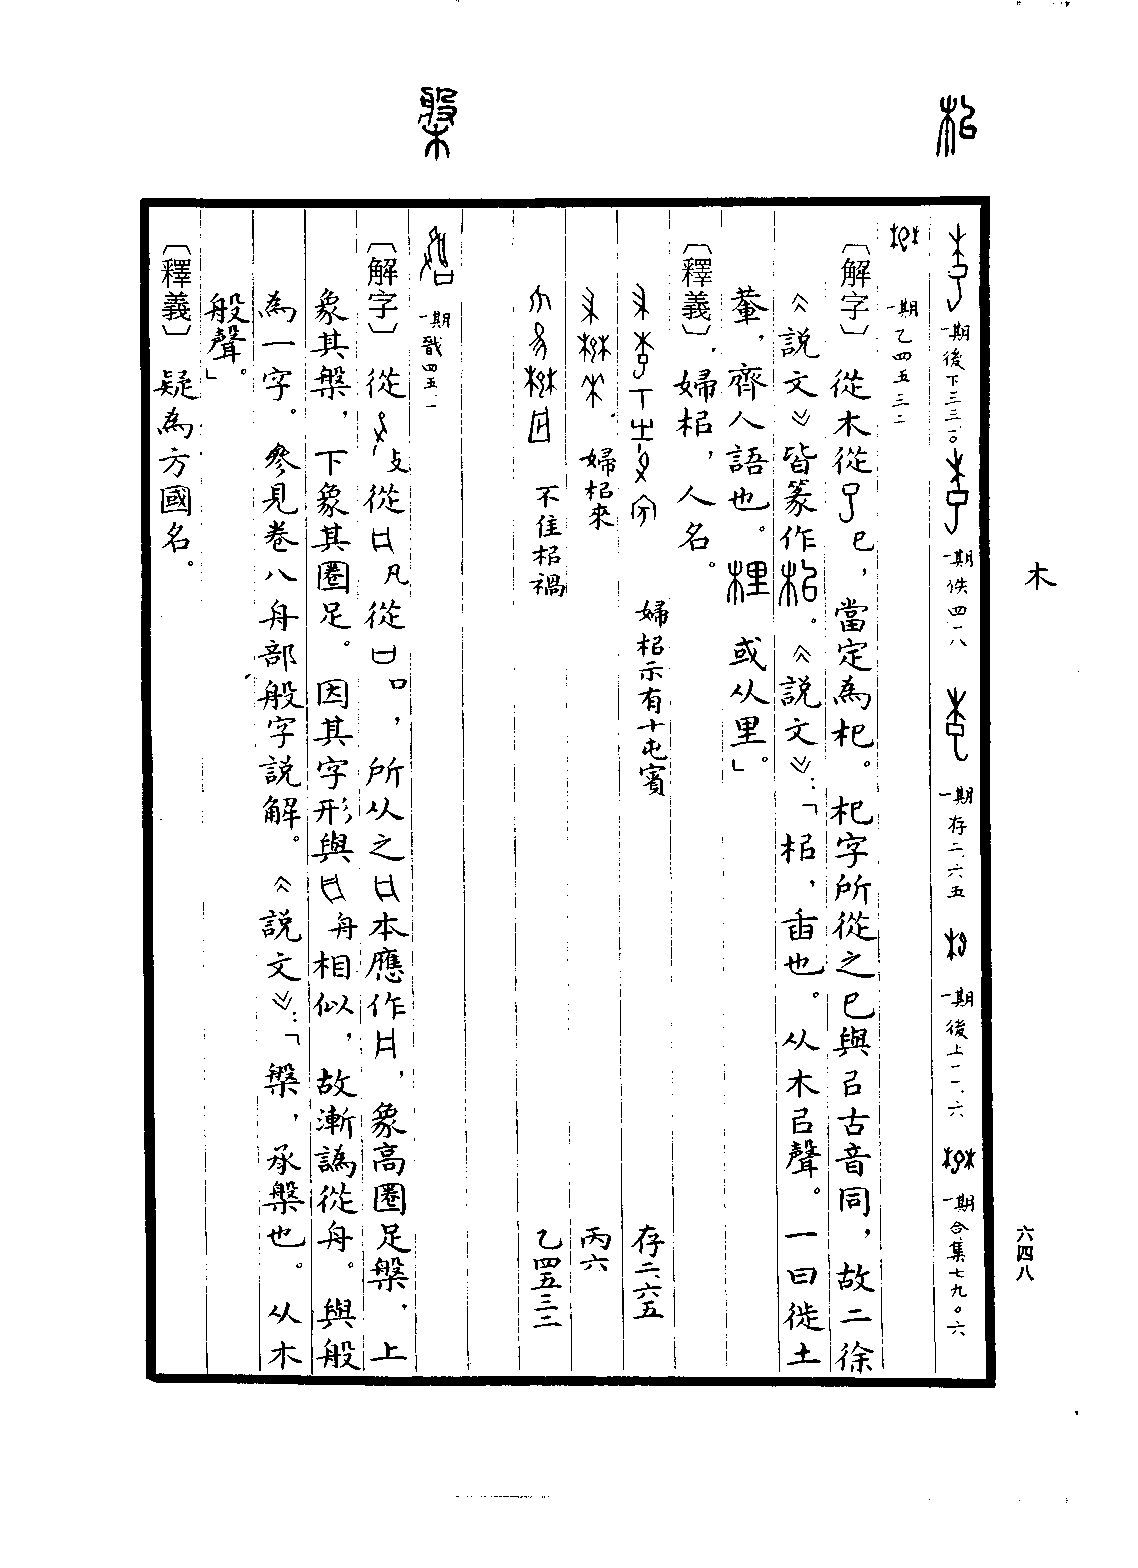 木
六四八
梠
一期後下三三.一〇 一期佚四一八 一期存二.二六五 一期後上一一.六 一期合集七九〇六
一期乙四五三二
〔解字〕從木從巳,當定為杞。杞字所從之巳與㠯古音同,故二徐
《說文》皆篆作梠。《說文》:「梠,臿也。从木㠯聲。一曰徙土
輂,齊人語也。梩 或从里」。
〔釋義〕.婦梠,人名。
婦梠示有十屯賓 存二.六五
婦梠來 丙六
不隹梠禍 乙四五三二
槃
一期戩四五.一
〔解字〕從攴從凡從口,所从之本應作,象高圈足槃,上
象其槃,下象其圈足。因其字形與舟相似,故漸譌從舟。與般
為一字。參見卷八舟部般字說解。《說文》:「槃,承槃也。从木
般聲」。
〔釋義〕疑為方國名。